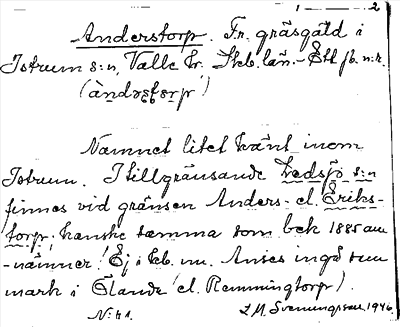 1 — 2
Anderstorp. Fr. gräsgäld i
Istrum s:n, Valle hr. Skb. län. - Etl jb. n:r.
(àndəʂtɔrp)
Namnet litet känt inom
Istrum. I tillgränsande Ledsjö s:n
finnes vid gränsen Anders- el. Eriks-
torp, kanske samma som bek 1885 an
-nämner. Ej i kb. m. Anses ingå som
mark i Öland (el. Remmingtorp).
N:41. L.M. Svenungsson 1946